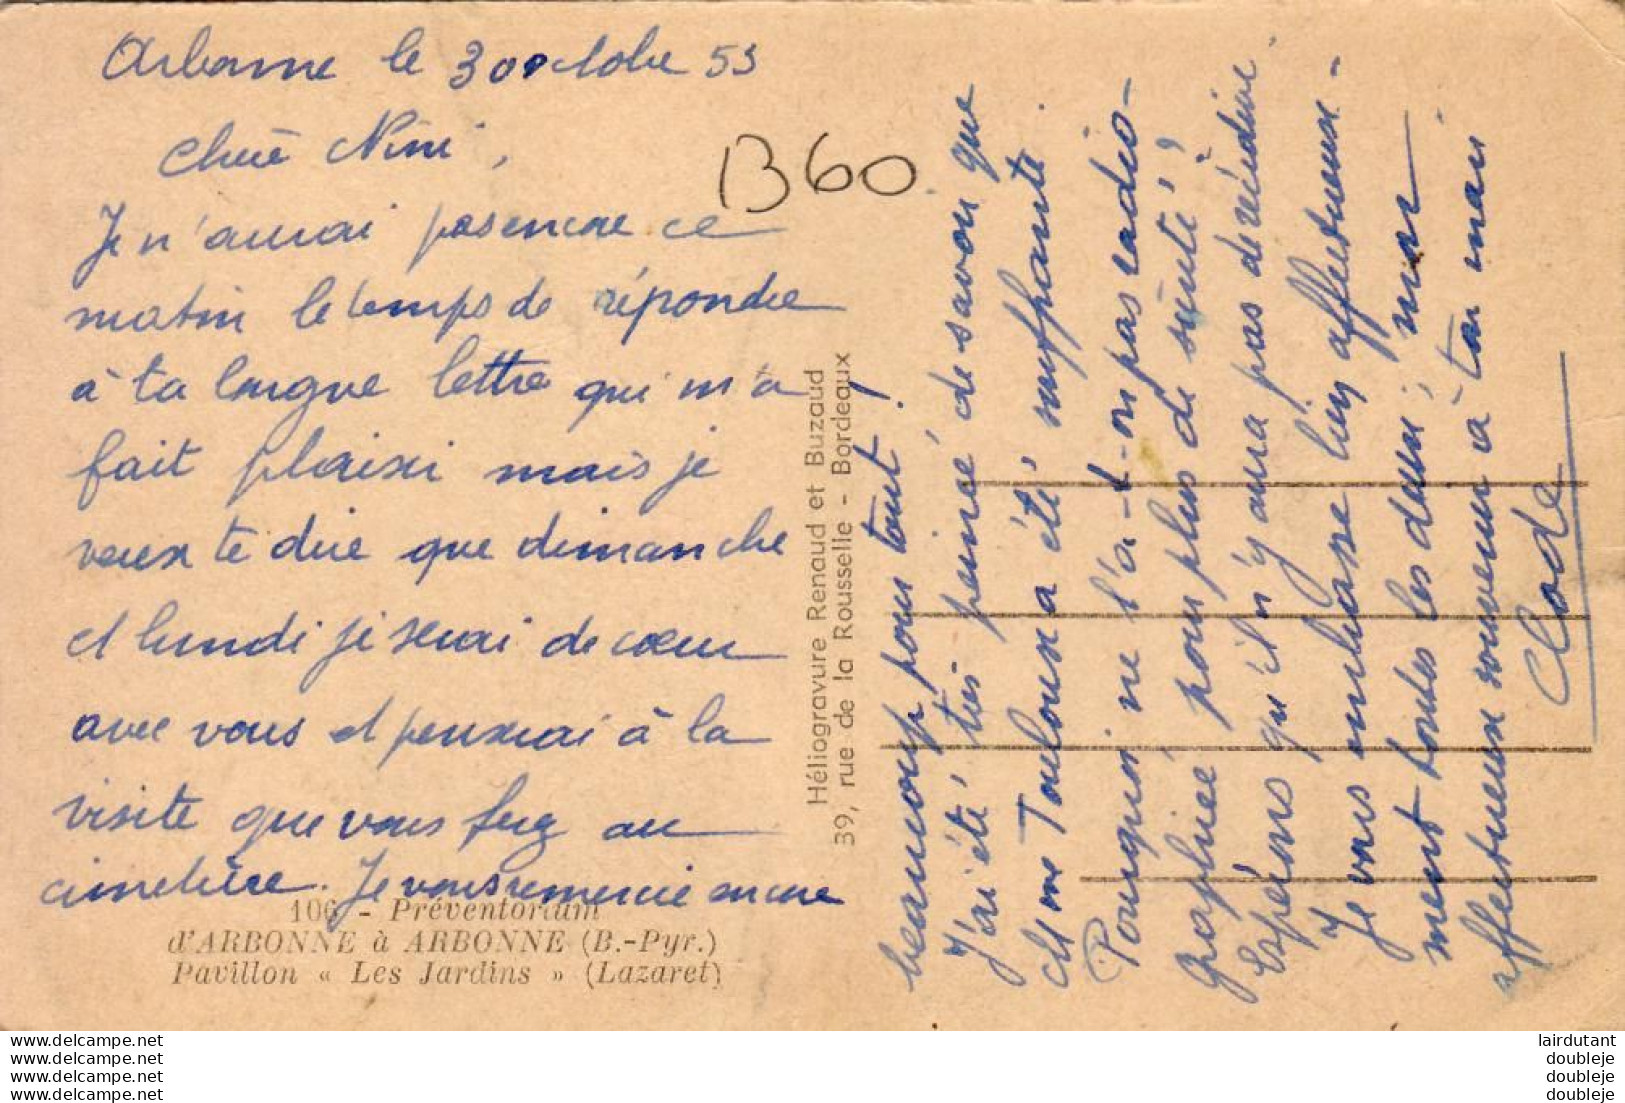 Arbonne le 30 octobre 53
B60
Chère Nini,
Je n'aurai pas encore ce
matin le temps de répondre
à ta longue lettre qui m'a
fait plaisir mais je
veux te dire que dimanche
et lundi je serai de cœur
avec vous et penserai à la
visite que vous ferez au
cimetière. Je vous remercie encore
106 - Préventorium
d'ARBONNE à ARBONNE (B.-Pyr.)
Pavillon « Les Jardins » (Lazaret)
Héliogravure Renaud et Buzaud
39, rue de la Rousselle - Bordeaux
beaucoup pour tout !
J'ai été très peinée de savoir que
Toulouse a été souffrante.
Pourquoi ne l'a-t-on pas radio-
graphiée pour plus de sûreté ?
Espérons qu'il n'y aura pas de récidive.
Je vous embrasse bien affectueuse-
ment toutes les deux, mon
affectueux souvenir à ton mari
Clode
lairdutant
doubleje
doubleje
doubleje
www.delcampe.net
www.delcampe.net
www.delcampe.net
www.delcampe.net